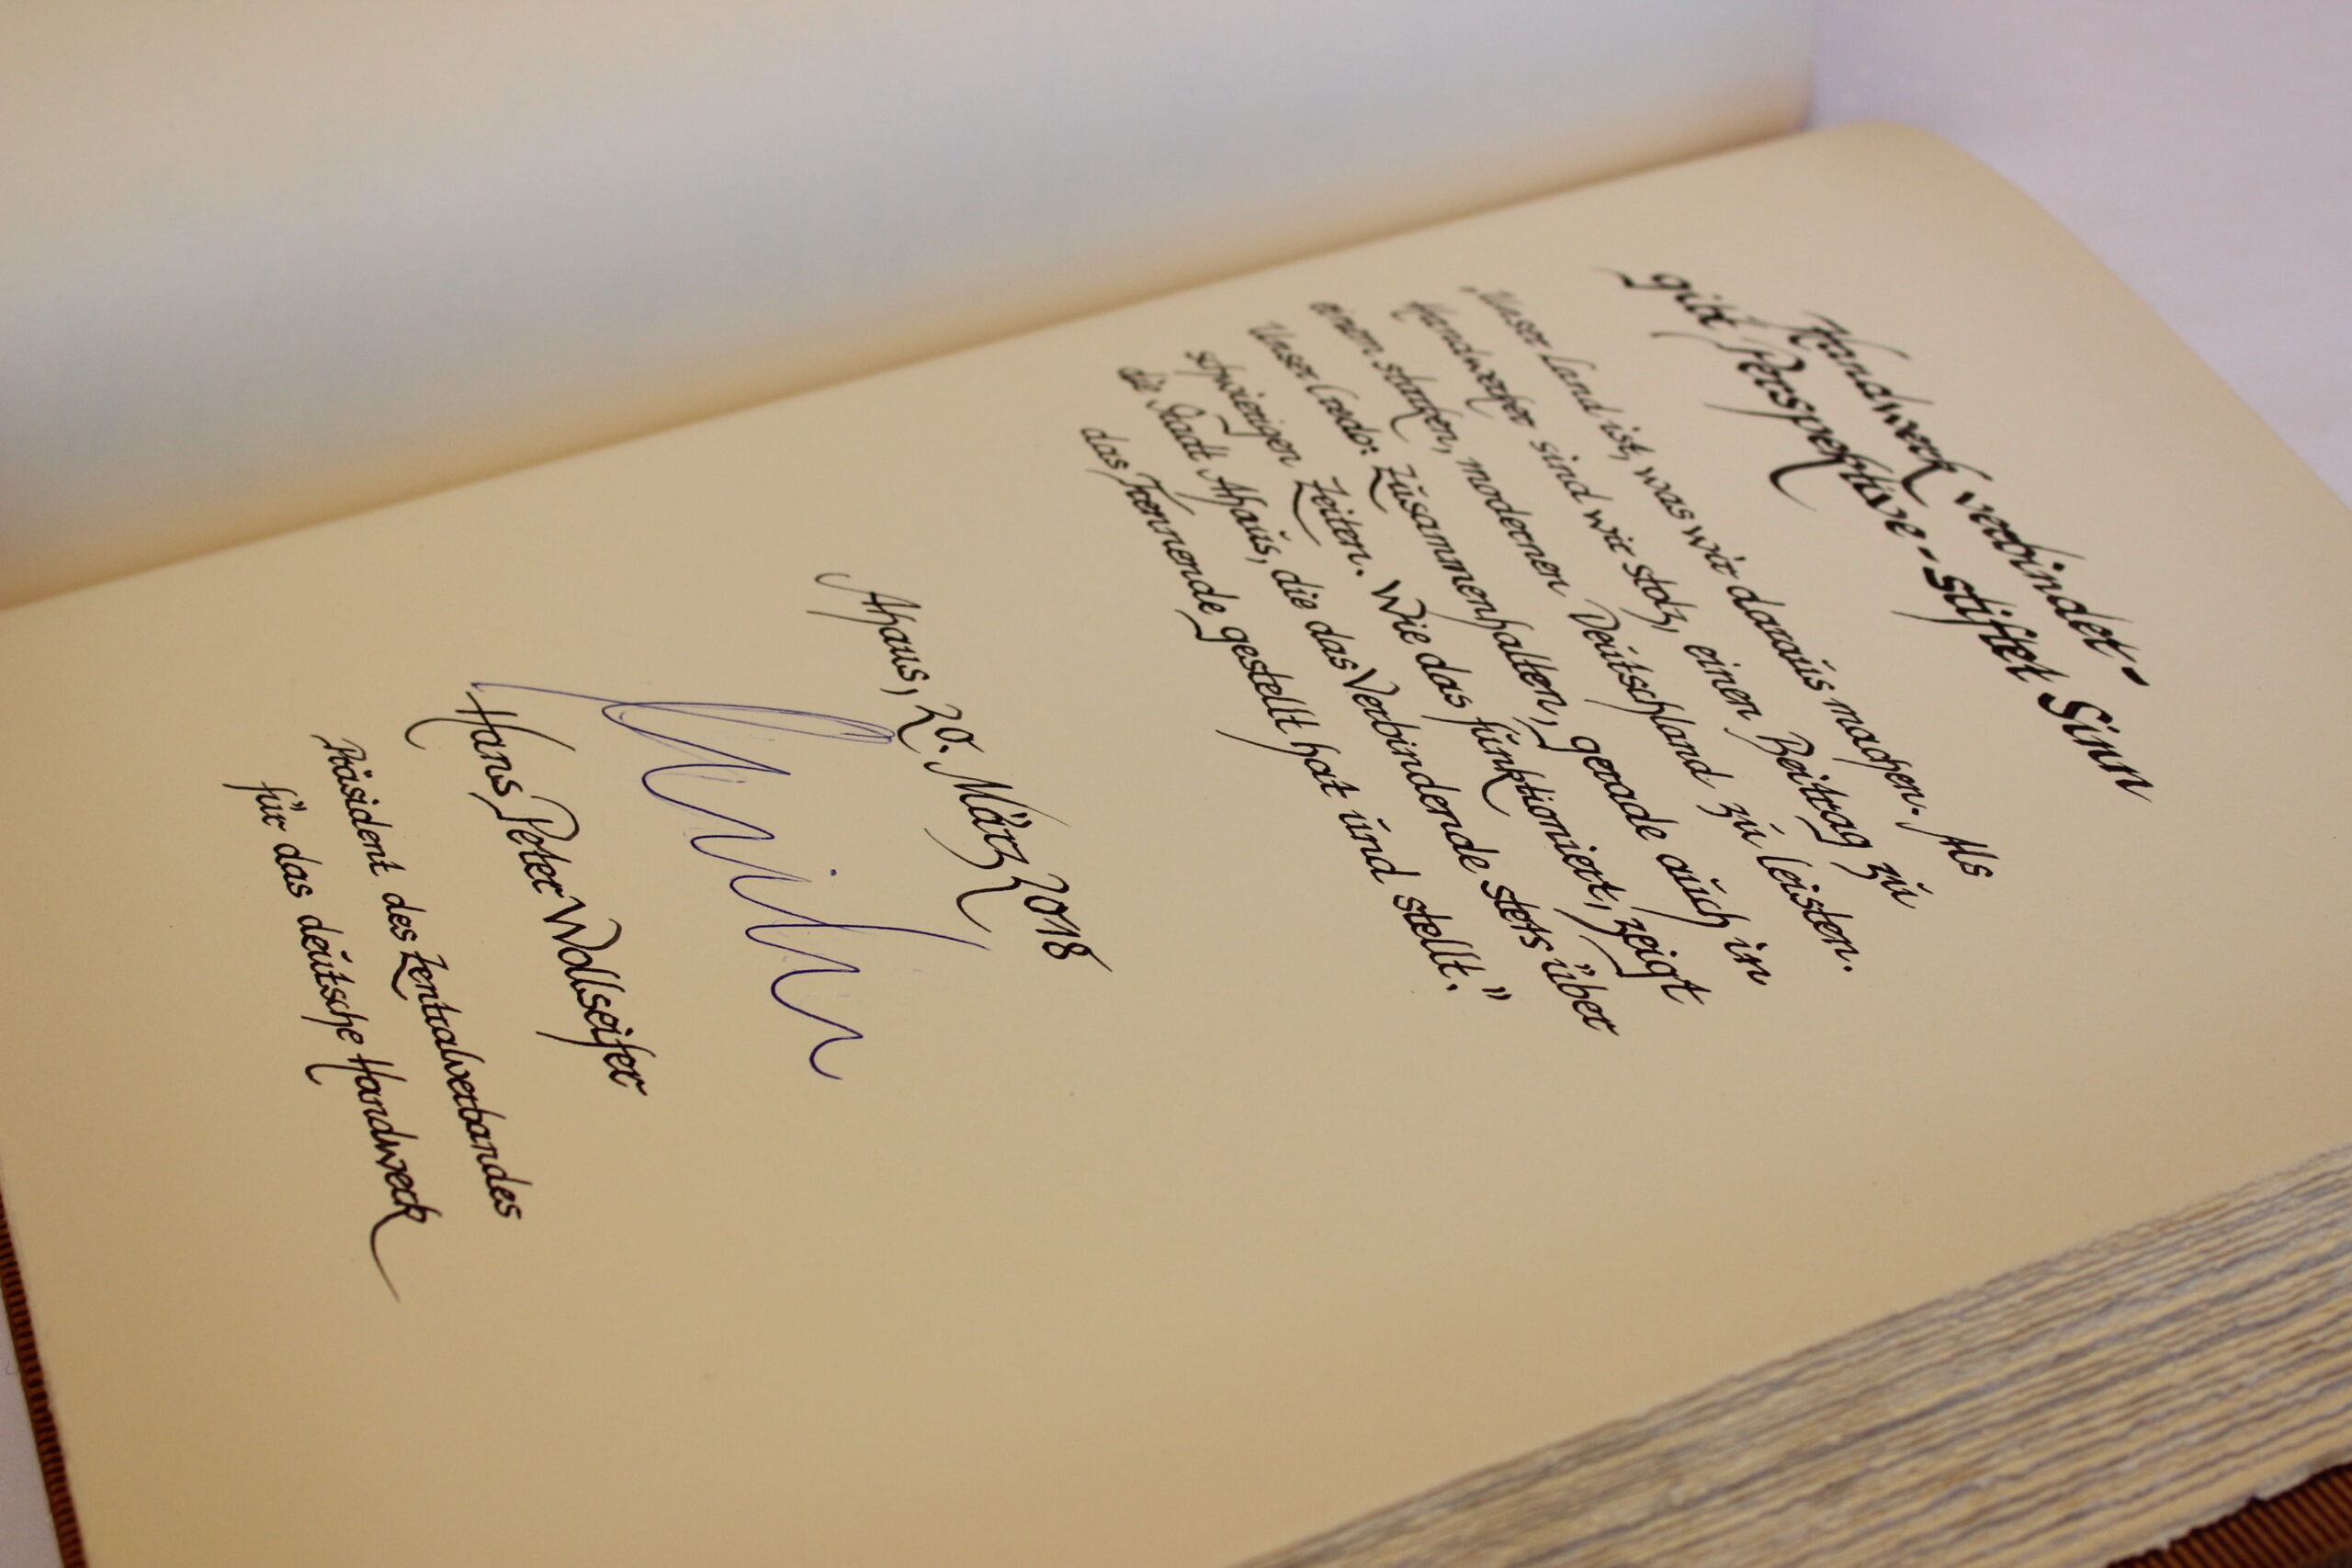 Handwerk verbindet -
gibt Perspektive - stiftet Sinn
„Unser Land ist, was wir daraus machen. Als
Handwerker sind wir stolz, einen Beitrag zu
einem starken, modernen Deutschland zu leisten.
Unser Credo: Zusammenhalten, gerade auch in
schwierigen Zeiten. Wie das funktioniert, zeigt
die Stadt Ahaus, die das Verbindende stets über
das Trennende gestellt hat und stellt.“
Ahaus, 20. März 2018
Hans Peter Wollseifer
Präsident des Zentralverbandes
für das deutsche Handwerk